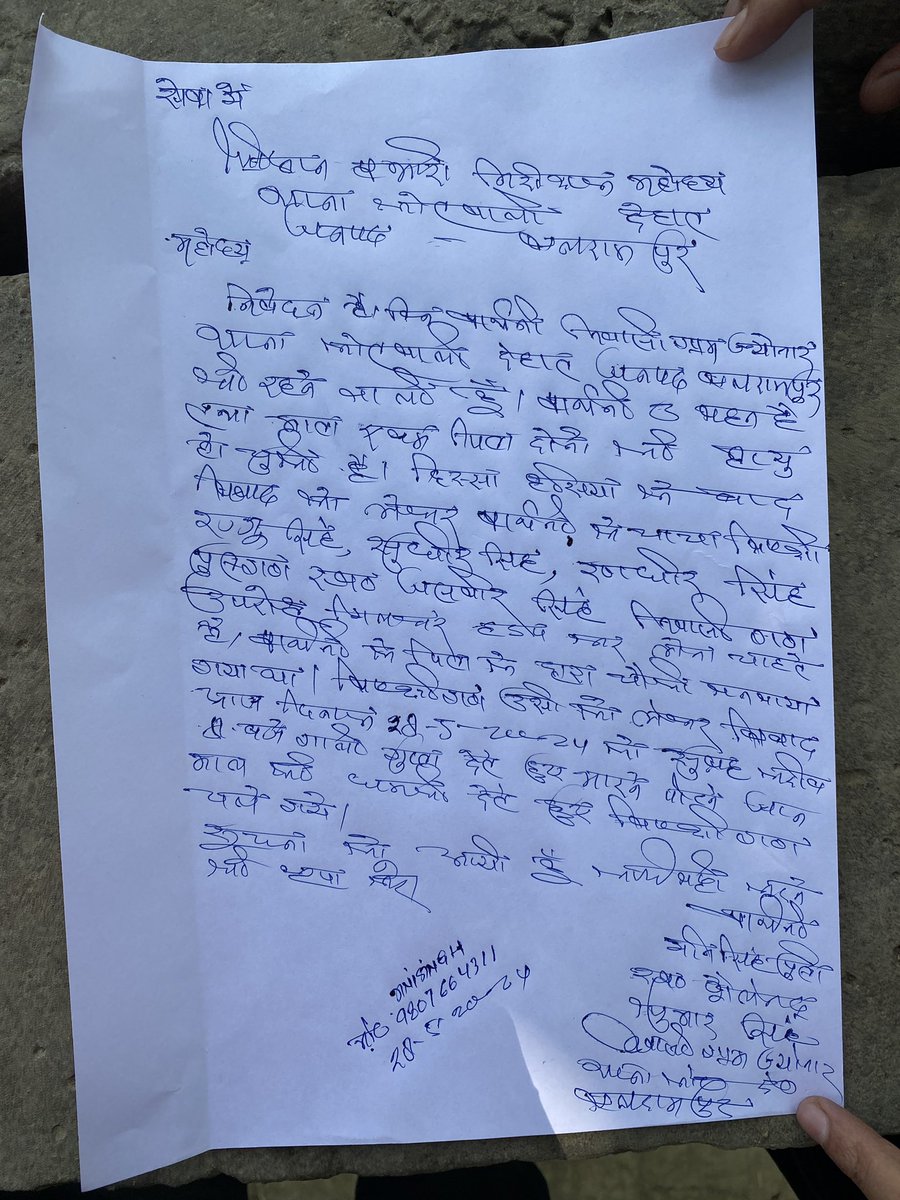 सेवा में
श्रीमान प्रभारी निरीक्षक महोदय
थाना कोतवाली देहात
जनपद - बलरामपुर
महोदय
निवेदन है कि प्रार्थिनी निवासी ग्राम ज्योनार
थाना कोतवाली देहात जनपद बलरामपुर
की रहने वाली है। प्रार्थिनी 3 बहन है
तथा माता पिता दोनो की मृत्यु
हो चुकी है। हिस्सा के बाद
विवाद को लेकर प्रार्थिनी के चाचा विपक्षी
राजू सिंह, सुधीर सिंह, रणधीर सिंह
पुत्रगण स्व० सिंह निवासी गण
उपरोक्त मिलकर हड़प कर लेना चाहते
है, प्रार्थिनी के पिता के द्वारा चौकी बनवाया
गया था। विपक्षीगण उसी को लेकर विवाद
आज दिनांक 28-5-2024 को सुबह करीब
8 बजे गाली गुप्ता देते हुए मारने पीटने जान
माल की धमकी देते हुए विपक्षी गण
चले गये।
सूचना को आयी हूँ कार्यवाही करने
की कृपा करें
प्रार्थिनी
सिंह पुत्री
स्व०
कुमार सिंह
निवासी ग्राम ज्योनार
थाना को० दे०
बलरामपुर
SINGH
मो० 9807664311
28-5-2024